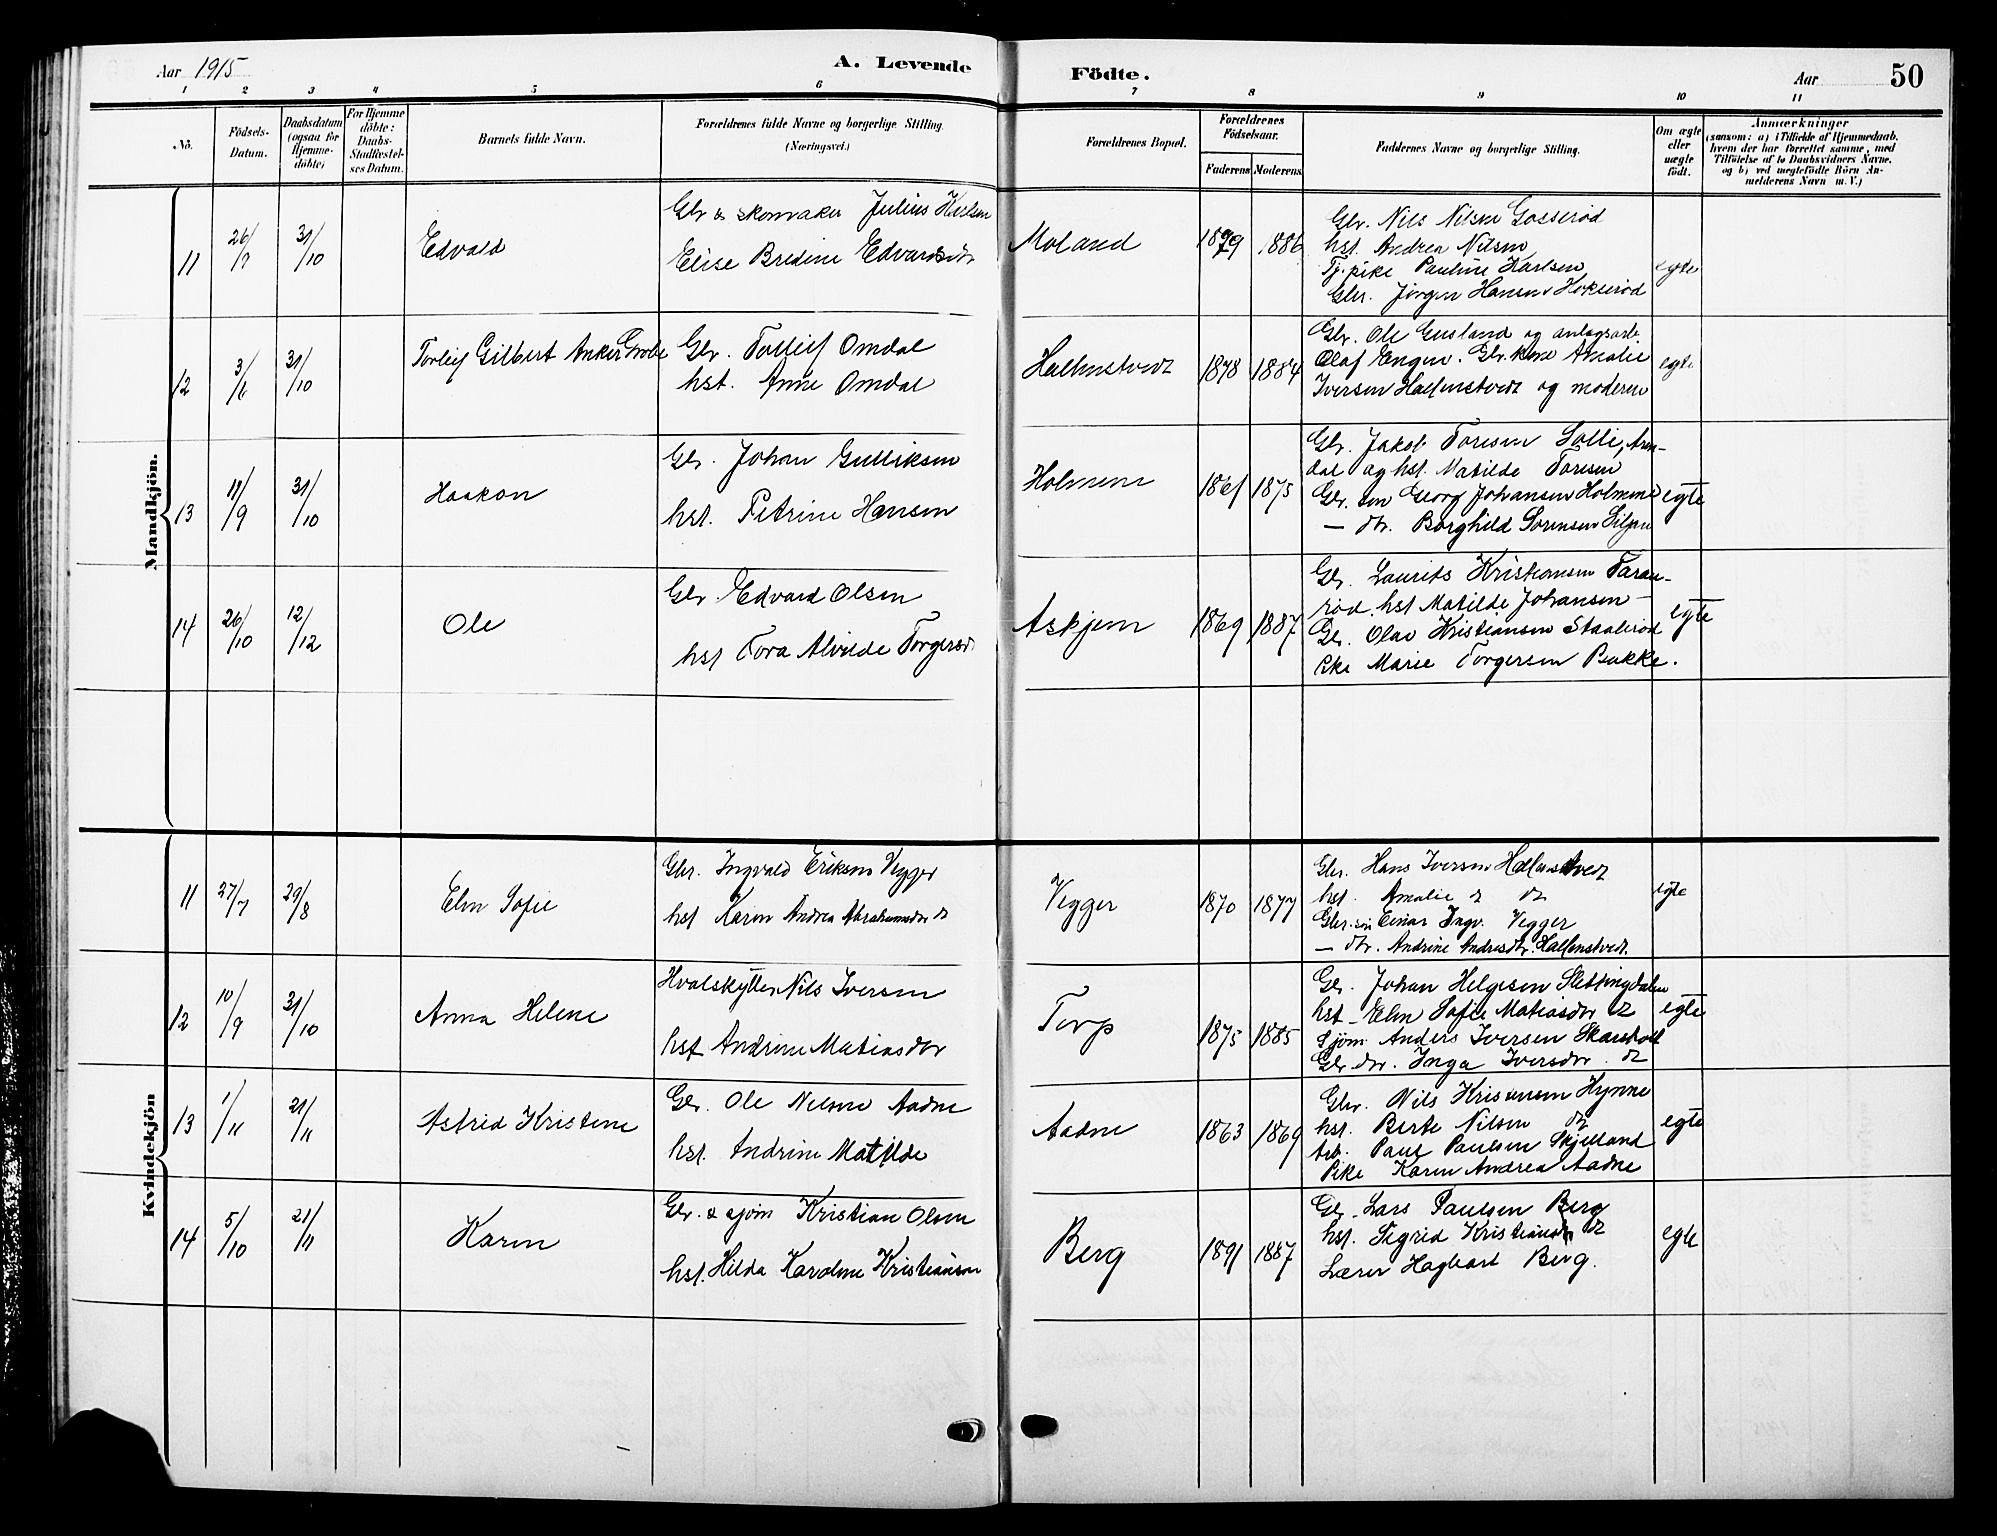 Aar 1915
A. Levende Födte.
Aar
50
1 2 3 4 5 6 7 8 9 10 11
No.
Födsels-
Datum.
Daabsdatum
(ogsaa for
Hjemme-
döbte)
For Hjemme
döbte:
Daabs-
Stadfæstel-
ses Datum.
Barnets fulde Navn.
Forældrenes fulde Navne og borgerlige Stilling.
(Næringsvei.)
Forældrenes Bopæl.
Forældrenes
Födselsaar.
Faderens Moderens
Faddernes Navne og borgerlige Stilling.
Om ægte
eller
uægte
födt.
Anmærkninger
(saasom: a) i Tilfælde af Hjemmedaab,
hvem der har forrettet samme, med
Tilföielse af to Daabsvidners Navne.
og b) ved uægtefödte Börn An-
melderens Navn m. V.)
Mandkjön.
11
26/7
31/10
Edvald
Gbr & skomaker Julius Karlsen
Elise Bredine Edvardsdtr
Moland
1879 1886
Gbr. Nils Nilsen Gosserød
hst. Andrea Nilsen
Tj.pike Pauline Karlsen
Gbr. Jørgen Hansen Hokserød
egte
12
3/6
31/10
Torleif Gilbert Anker Grobe
Gbr. Tolleif Omdal
hst. Anne Omdal
Hallenstvedt
1878 1884
Gbr. Ole Gusland og anlægsarb.
Olaf Engen. Gbr.kone Amalie
Iversen Hallenstvedt og moderen
egte
13
11/9
31/10
Haakon
Gbr. Johan Gulliksen
hst. Petrine Hansen
Holmene
1861 1875
Gbr. Jakob Toresen Solli, Aren-
dal og hst. Matilde Toresen
Gbr. søn Georg Johansen Holmene
— dtr. Borghild Sørensen Siljan
egte
14
26/10
12/12
Ole
Gbr Edvard Olsen
hst Tora Alvilde Torgersdr
Askjem
1869 1887
Gbr. Laurits Kristiansen Taran-
rød. hst Matilde Johansen —
Gbr. Olav Kristiansen Staalerød
Pike Marie Torgersen Bakke.
egte
Kvindekjön
11
27/7
29/8
Elen Sofie
Gbr. Ingvald Eriksen Vegger
hst Karen Andrea Abrahamsdtr do
Vegger
1870 1877
Gbr. Hans Iversen Hallenstvedt
hst. Amalie do do
Gbr. søn Einar Ingv. Vegger
— dtr. Andrine Andresdtr. Hallenstvedt.
egte
12
10/9
31/10
Anna Helene
Hvalskytter Nils Iversen
hst Andrine Matiasdtr
Torp
1875 1885
Gbr. Johan Helgesen Slettingdalen
hst. Elen Sofie Matiasdtr do
Sjøm. Anders Iversen Skarsholt
Gbr. dtr. Inga Iversdtr. do
egte
13
1/11
21/11
Astrid Kristine
Gbr. Ole Nilsen Aadne
hst. Andrine Matilde
Aadne
1863 1869
Gbr. Nils Kristensen Hynne
hst. Berte Nilsen do
Arb. Paul Paulsen Skjelland
Pike Karen Andrea Aadne
egte
14
5/10
21/11
Karen
Gbr. & sjøm Kristian Olsen
hst. Hilda Karoline Kristiansen
Berg
1891 1887
Gbr. Lars Paulsen Berg
hst. Sigrid Kristiansen do
Lærer Hagbart Berg.
egte